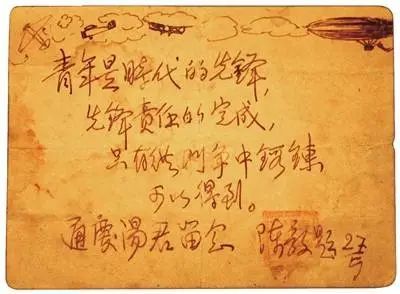 青年是時代的先鋒,
先鋒責任的完成,
只有從鬥争中鍛鍊
可以得到。
湯君留念 陳毅題 25/5